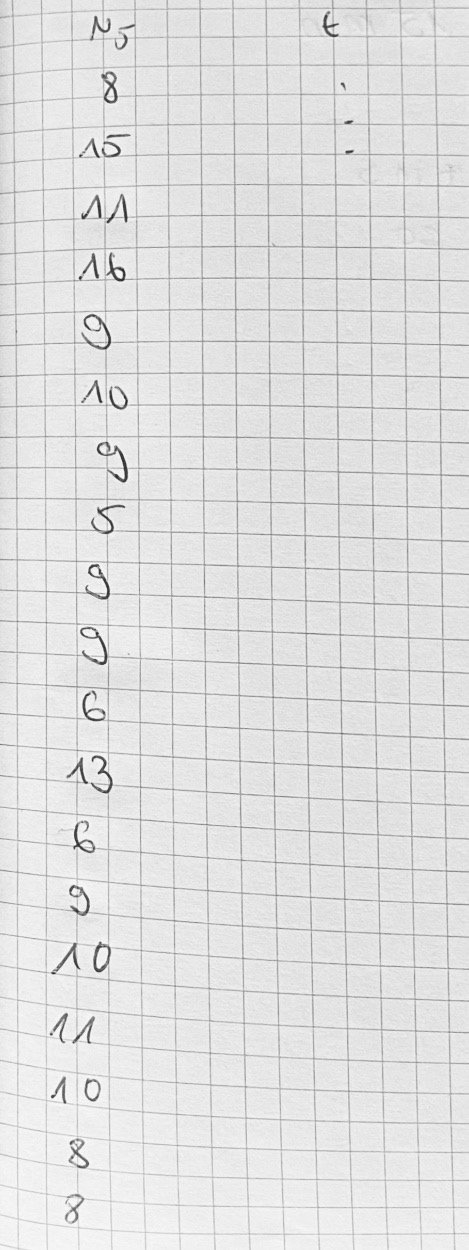 N5 t
8
15
11
16
9
10
9
5
9
9
6
13
6
9
10
11
10
8
8